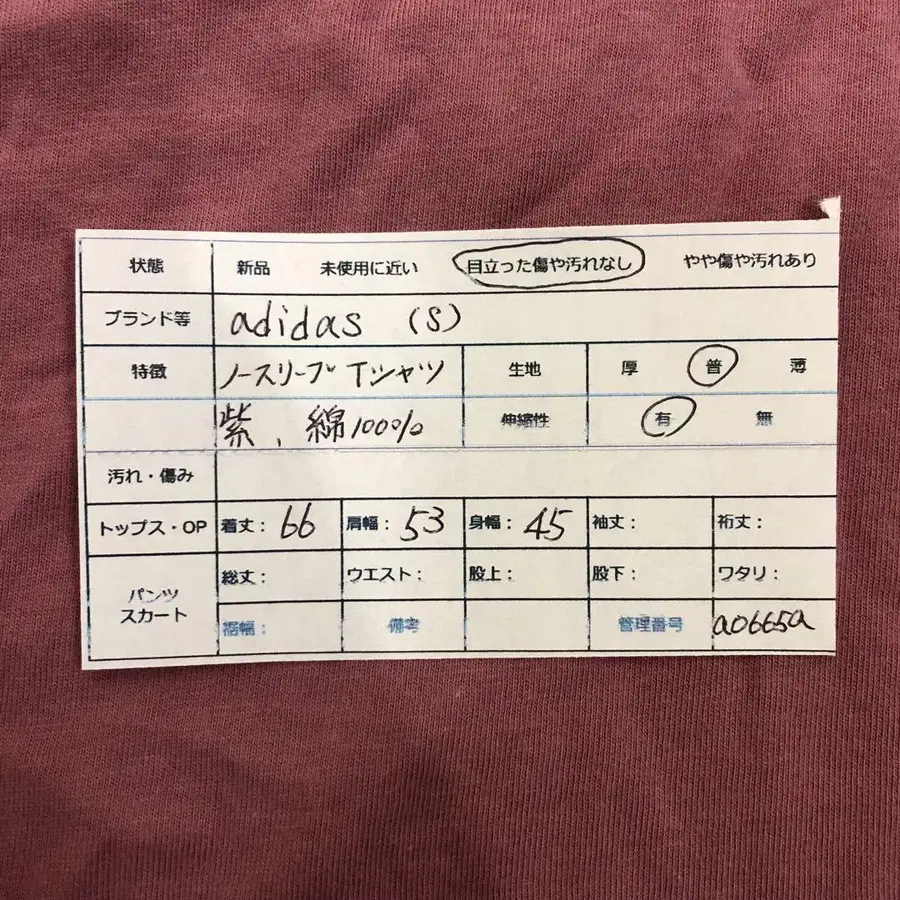 状態 新品 未使用に近い 目立った傷や汚れなし やや傷や汚れあり
ブランド等 adidas (S)
特徴 ノースリーブTシャツ 生地 厚 普 薄
紫、綿100% 伸縮性 有 無
汚れ・傷み
トップス・OP 着丈: 66 肩幅: 53 身幅: 45 袖丈: 裄丈:
パンツ スカート 総丈: ウエスト: 股上: 股下: ワタリ:
裾幅: 備考 管理番号 a0665a